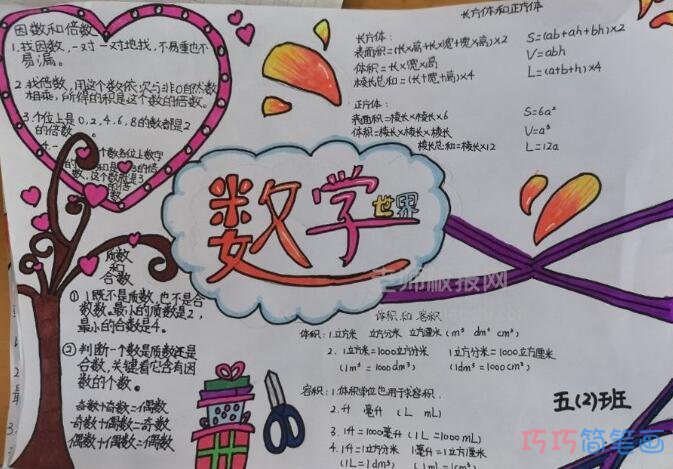 因数和倍数
1.找因数,一对一对地找,不易重也不易漏。
2.找倍数,用这个数依次与非0自然数
相乘,所得的积是这个数的倍数。
3.个位上是0,2,4,6,8的数都是2
的倍数。
4.一个数各位上数字
的和是3的倍
数,这个数就是3
的倍数
质数
和
合数
① 1既不是质数,也不是合
数。最小的质数是2,
最小的合数是4。
② 判断一个数是质数还是
合数,关键看它含有因
数的个数。
奇数+奇数=偶数
奇数+偶数=奇数
偶数+偶数=偶数
数学世界
长方体和正方体
长方体:
表面积=(长×高+长×宽+宽×高)×2 S=(ab+ah+bh)×2
体积=长×宽×高 V=abh
棱长总和=(长+宽+高)×4 L=(a+b+h)×4
正方体:
表面积=棱长×棱长×6 S=6a²
体积=棱长×棱长×棱长 V=a³
棱长总和=棱长×12 L=12a
老师板报网
体积和容积
体积:1.立方米 立方分米 立方厘米(m³ dm³ cm³)
2. 1立方米=1000立方分米 1立方分米=1000立方厘米
(1m³=1000dm³) (1dm³=1000cm³)
容积:1.体积单位也用于容积.
2.升 毫升 (L mL)
3. 1升=1000毫升 (1L=1000mL)
4. 1升=1立方分米 1毫升=1立方厘米
(1L=1dm³) (1mL=1cm³)
五(2)班
巧巧简笔画